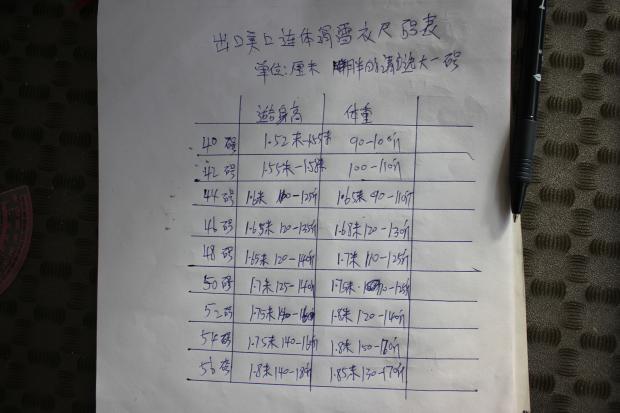 出口美口连体滑雪衣尺码表
单位:厘米 胖的请选大一码
适合身高 体重
40码 1.52米-1.55米 90-100斤
42码 1.55米-1.58米 100-110斤
44码 1.6米 110-125斤 1.65米 90-110斤
46码 1.65米 120-135斤 1.68米 120-130斤
48码 1.65米 120-140斤 1.7米 110-125斤
50码 1.7米 125-140斤 1.75米 110-125斤
52码 1.75米 140-160斤 1.8米 120-140斤
54码 1.75米 140-16斤 1.8米 150-170斤
56码 1.8米 140-18斤 1.85米 130-170斤